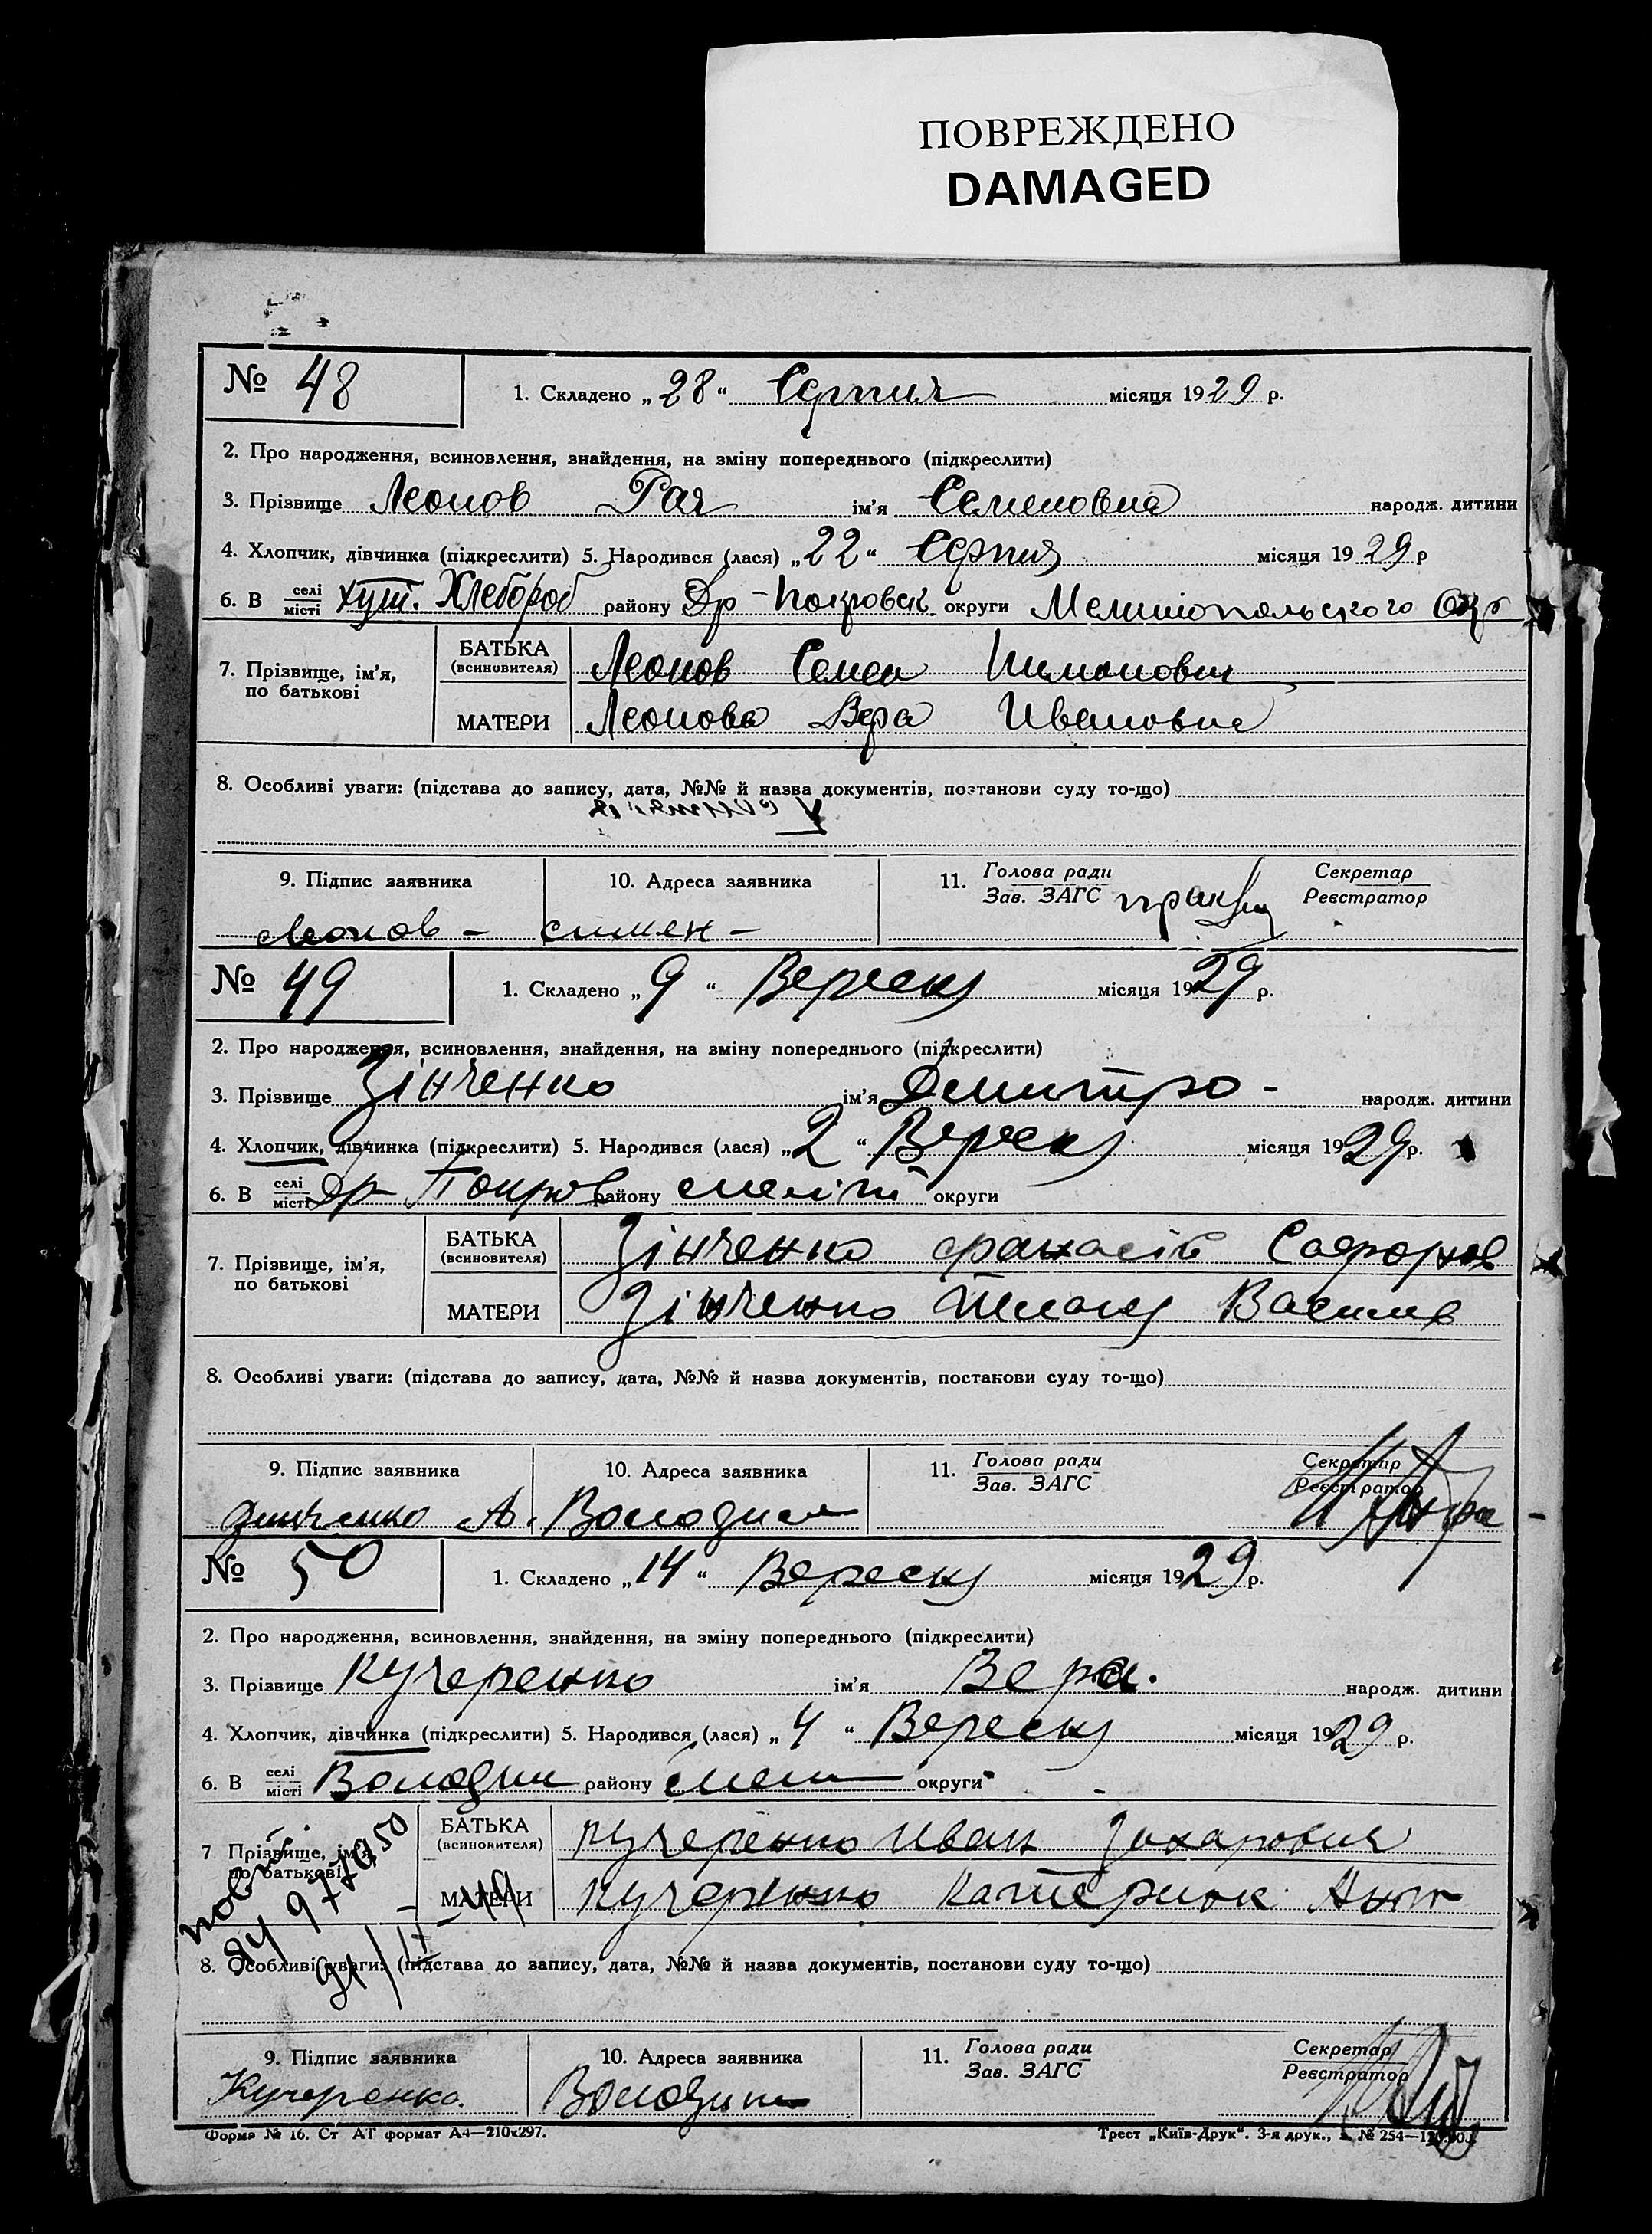 ПОВРЕЖДЕНО
DAMAGED
№ 48
1. Складено „28“ Серпня місяця 1929 р.
2. Про народження, всиновлення, знайдення, на зміну попереднього (підкреслити)
3. Прізвище Леонов Рая ім’я Семеновна народж. дитини
4. Хлопчик, дівчинка (підкреслити) 5. Народився (лася) „22“ Серпня місяця 1929 р
6. В селі місті хут. Хлебороб району Др-Покровск округи Мелитопольского Окр
7. Прізвище, ім’я, по батькові
БАТЬКА (всиновителя) Леонов Семен
МАТЕРИ Леонова Вера Ивановна
8. Особливі уваги: (підстава до запису, дата, №№ й назва документів, постанови суду то-що)
9. Підпис заявника 10. Адреса заявника 11. Голова ради Зав. ЗАГС Секретар Реєстратор
Леонов – симен –
№ 49
1. Складено „9“ Вересня місяця 1929 р.
2. Про народження, всиновлення, знайдення, на зміну попереднього (підкреслити)
3. Прізвище Зінченко ім’я Демитро - народж. дитини
4. Хлопчик, дівчинка (підкреслити) 5. Народився (лася) „2“ Вересня місяця 1929 р.
6. В селі місті Др Покров району меліт округи
7. Прізвище, ім’я, по батькові
БАТЬКА (всиновителя) Зінченко Софронов
МАТЕРИ Зінченко Василів
8. Особливі уваги: (підстава до запису, дата, №№ й назва документів, постанови суду то-що)
9. Підпис заявника 10. Адреса заявника 11. Голова ради Зав. ЗАГС Секретар Реєстратор
Зинченко А.
№ 50
1. Складено „14“ Вересня місяця 1929 р.
2. Про народження, всиновлення, знайдення, на зміну попереднього (підкреслити)
3. Прізвище Кучеренко ім’я Вера. народж. дитини
4. Хлопчик, дівчинка (підкреслити) 5. Народився (лася) „4“ Вересня місяця 1929 р.
6. В селі місті району мел округи
7 Прізвище, ім’я, по батькові
БАТЬКА (всиновителя) Кучеренко Иван Захарович
МАТЕРИ Кучеренко Катерина
8. Особливі уваги: (підстава до запису, дата, №№ й назва документів, постанови суду то-що)
9. Підпис заявника 10. Адреса заявника 11. Голова ради Зав. ЗАГС Секретар Реєстратор
Кучеренко.
Форма № 16. Ст АТ формат А4—210х297. Трест „Київ-Друк“. 3-я друк.,